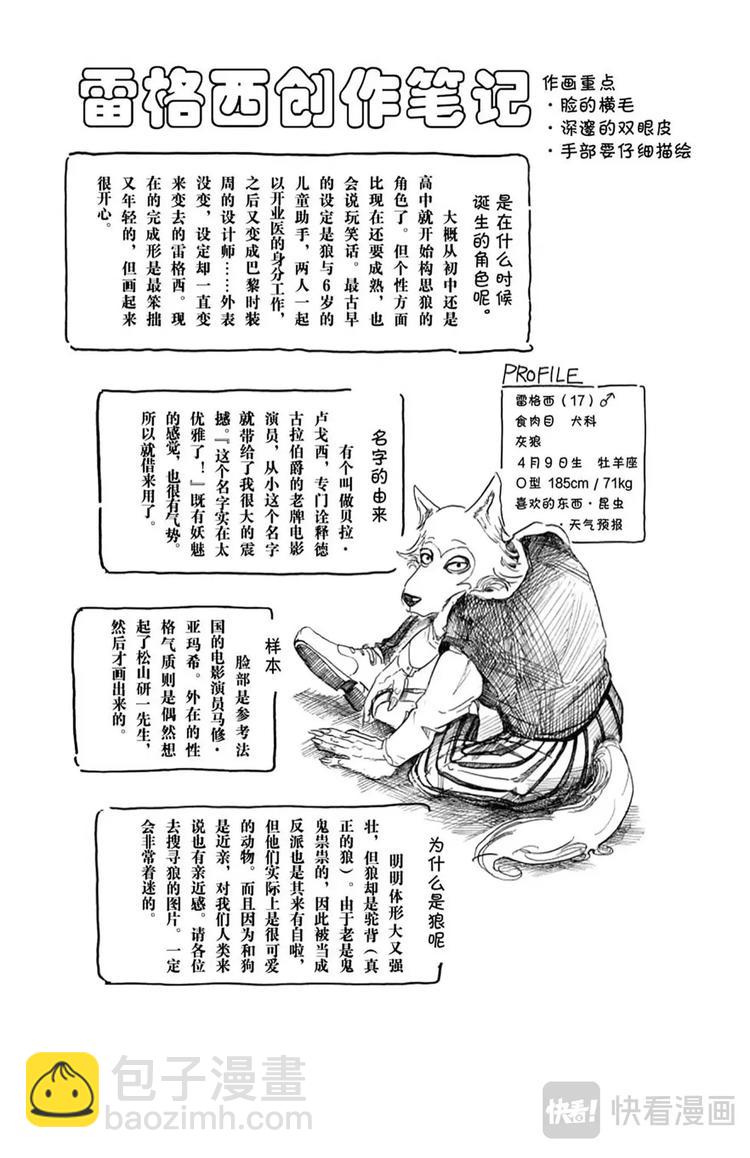 雷格西创作笔记
作画重点
·脸的横毛
·深邃的双眼皮
·手部要仔细描绘
是在什么时候
诞生的角色呢。
大概从初中还是
高中就开始构思狼的
角色了。但个性方面
比现在还要成熟，也
会说玩笑话。最古早
的设定是狼与6岁的
儿童助手，两人一起
以开业医的身分工作，
之后又变成巴黎时装
周的设计师……外表
没变，设定却一直变
来变去的雷格西。现
在的完成形是最笨拙
又年轻的，但画起来
很开心。
PROFILE
雷格西（17）♂
食肉目 犬科
灰狼
4月9日生 牡羊座
O型 185cm/71kg
喜欢的东西·昆虫
·天气预报
名字的由来
有个叫做贝拉·
卢戈西，专门诠释德
古拉伯爵的老牌电影
演员，从小这个名字
就带给了我很大的震
撼。『这个名字实在太
优雅了！』既有妖魅
的感觉，也很有气势。
所以就借来用了。
样本
脸部是参考法
国的电影演员马修·
亚玛希。外在的性
格气质则是偶然想
起了松山研一先生，
然后才画出来的。
为什么是狼呢
明明体形大又强
壮，但狼却是驼背（真
正的狼）。由于老是鬼
鬼祟祟的，因此被当成
反派也是其来有自啦，
但他们实际上是很可爱
的动物。而且因为和狗
是近亲，对我们人类来
说也有亲近感。请各位
去搜寻狼的图片。一定
会非常着迷的。
包子漫畫
baozimh.com
快看！快看漫画